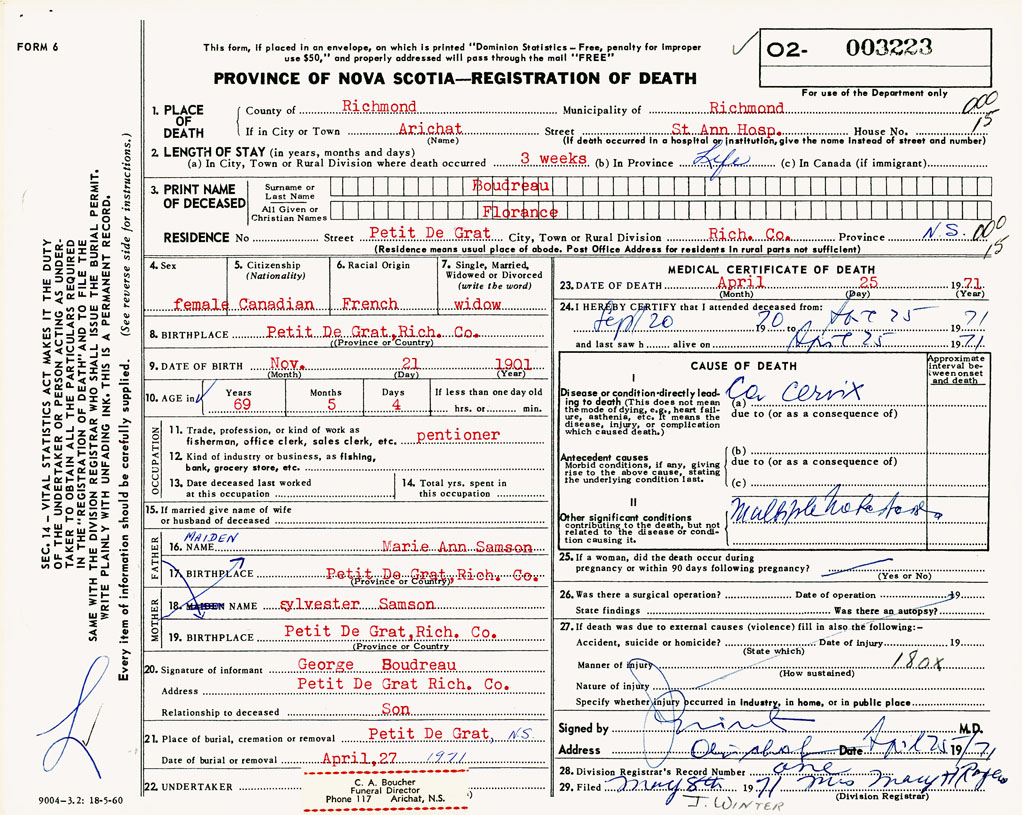 FORM 6
This form, if placed in an envelope, on which is printed "Dominion Statistics – Free, penalty for improper
use $50," and properly addressed will pass through the mail "FREE"
✓ O2- 003223
For use of the Department only
PROVINCE OF NOVA SCOTIA—REGISTRATION OF DEATH
000
15
1. PLACE OF DEATH
County of Richmond Municipality of Richmond
If in City or Town Arichat Street St Ann Hosp. House No.
(Name) (If death occurred in a hospital or institution, give the name instead of street and number)
2. LENGTH OF STAY (in years, months and days)
(a) In City, Town or Rural Division where death occurred 3 weeks (b) In Province Life (c) In Canada (if immigrant)
3. PRINT NAME OF DECEASED
Surname or Last Name Boudreau
All Given or Christian Names Florance
RESIDENCE No Street Petit De Grat City, Town or Rural Division Rich. Co. Province N.S. 000
15
(Residence means usual place of abode. Post Office Address for residents in rural parts not sufficient)
4. Sex female
5. Citizenship (Nationality) Canadian
6. Racial Origin French
7. Single, Married, Widowed or Divorced (write the word) widow
8. BIRTHPLACE Petit De Grat,Rich. Co.
(Province or Country)
9. DATE OF BIRTH Nov. 21 1901
(Month) (Day) (Year)
10. AGE in ✓ Years 69 Months 5 Days 4 If less than one day old hrs. or min.
OCCUPATION
11. Trade, profession, or kind of work as
fisherman, office clerk, sales clerk, etc. pentioner
12. Kind of industry or business, as fishing,
bank, grocery store, etc.
13. Date deceased last worked
at this occupation
14. Total yrs. spent in
this occupation
15. If married give name of wife
or husband of deceased
FATHER
MAIDEN
16. NAME Marie Ann Samson
17. BIRTHPLACE Petit De Grat,Rich. Co.
(Province or Country)
MOTHER
18. MAIDEN NAME sylvester Samson
19. BIRTHPLACE Petit De Grat,Rich. Co.
(Province or Country
20. Signature of informant George Boudreau
Address Petit De Grat Rich. Co.
Relationship to deceased Son
21. Place of burial, cremation or removal Petit De Grat, N.S.
Date of burial or removal April,27 1971
22. UNDERTAKER
C. A. Boucher
Funeral Director
Phone 117 Arichat, N.S.
MEDICAL CERTIFICATE OF DEATH
23. DATE OF DEATH April 25 1971
(Month) (Day) (Year)
24. I HEREBY CERTIFY that I attended deceased from:
Sept 20 1970 to Apr 25 1971
and last saw h alive on April 25 1971
CAUSE OF DEATH
Approximate interval between onset and death
I
Disease or condition directly leading to death (This does not mean the mode of dying, e.g., heart failure, asthenia, etc. It means the disease, injury, or complication which caused death.)
(a) Ca Cervix
due to (or as a consequence of)
Antecedent causes
Morbid conditions, if any, giving rise to the above cause, stating the underlying condition last.
(b)
due to (or as a consequence of)
(c)
II
Other significant conditions contributing to the death, but not related to the disease or condition causing it.
Multiple
25. If a woman, did the death occur during
pregnancy or within 90 days following pregnancy?
(Yes or No)
26. Was there a surgical operation? Date of operation 19
State findings Was there an autopsy?
27. If death was due to external causes (violence) fill in also the following:-
Accident, suicide or homicide? Date of injury 19
(State which)
Manner of injury 180X
(How sustained)
Nature of injury
Specify whether injury occurred in industry, in home, or in public place
Signed by M.D.
Address Date April 25 1971
28. Division Registrar's Record Number one
29. Filed May 8th 1971 Mrs Mary H
(Division Registrar)
J. WINTER
SEC. 14 – VITAL STATISTICS ACT MAKES IT THE DUTY
OF THE UNDERTAKER OR PERSON ACTING AS UNDER-
TAKER TO OBTAIN ALL THE PARTICULARS REQUIRED
IN THE "REGISTRATION OF DEATH" AND TO FILE THE
SAME WITH THE DIVISION REGISTRAR WHO SHALL ISSUE THE BURIAL PERMIT.
WRITE PLAINLY WITH UNFADING INK. THIS IS A PERMANENT RECORD.
Every item of information should be carefully supplied. (See reverse side for instructions.)
9004–3.2: 18-5-60